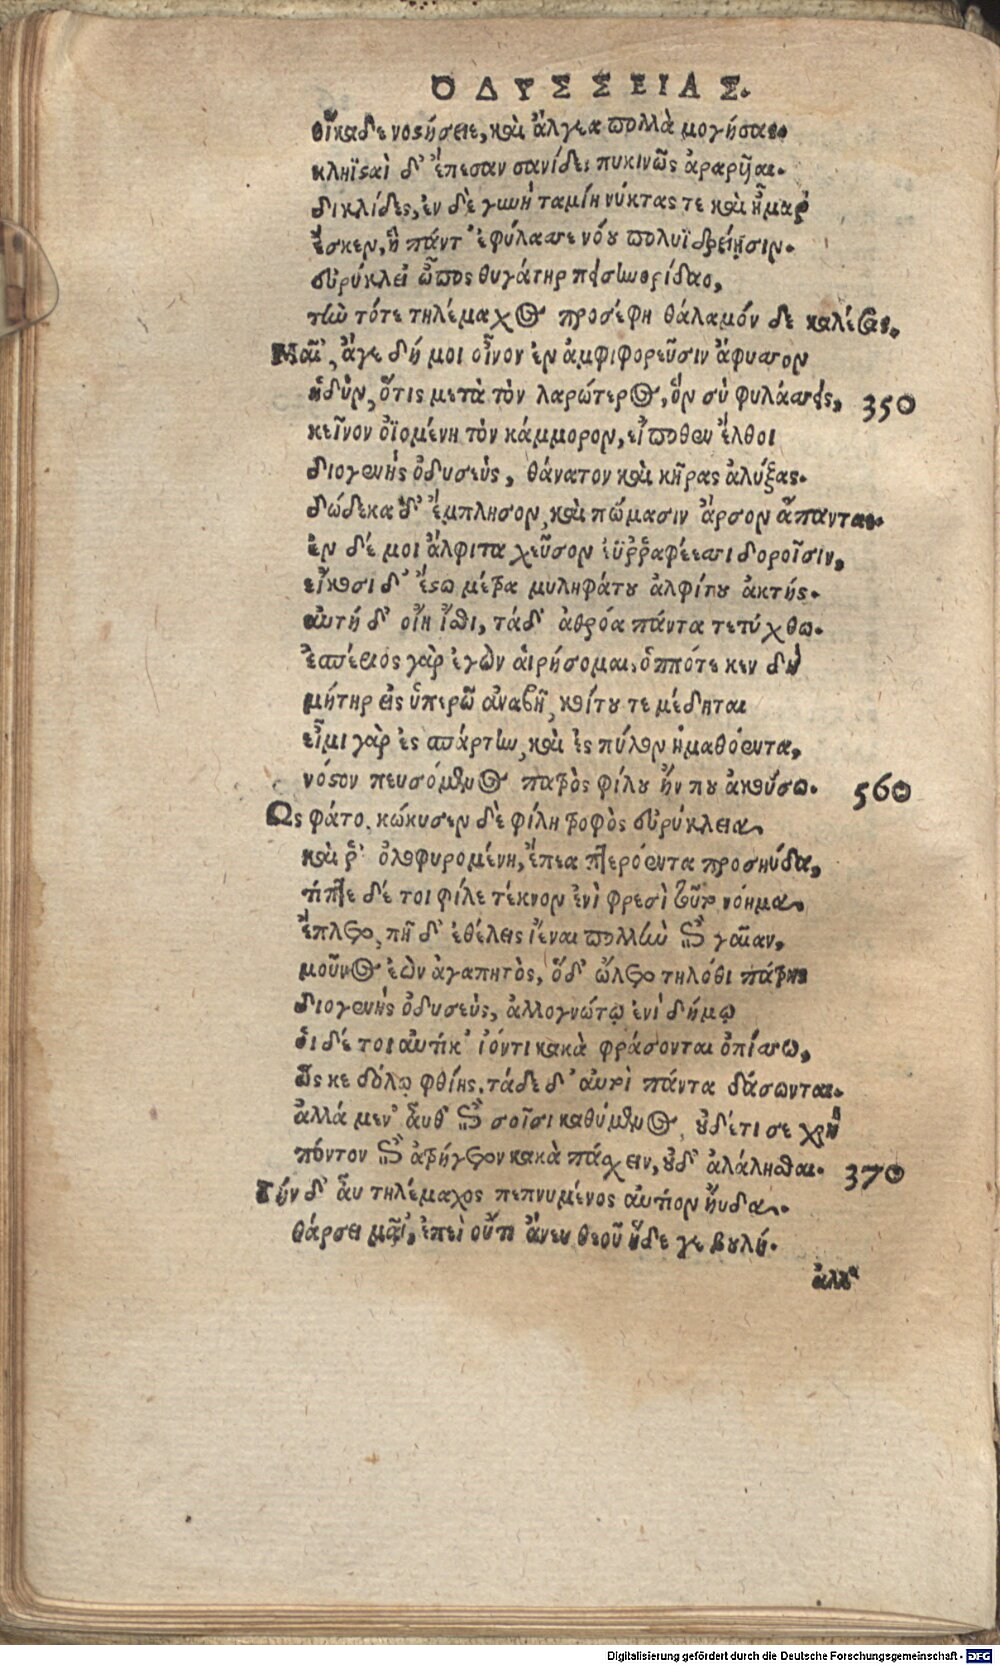 ΟΔΥΣΣΕΙΑΣ.
οἴκαδε νοστήσειε, καὶ ἄλγεα πολλὰ μογήσας.
κληϊσαὶ δ' ἔπεσαν σανίδες πυκινῶς ἀραρῆαι.
δικλίδες, ἐν δὲ γυνὴ ταμίη νύκτας τε καὶ ἦμαρ
ἔσκεν, ἣ πάντ' ἐφύλασσε νόου πολυϊδρείῃσιν.
εὐρύκλει' ὦπος θυγάτηρ πεισηνορίδαο,
τὴν τότε τηλέμαχος προσέφη θάλαμόν δε καλέσας.
Μαῖ', ἄγε δή μοι οἶνον ἐν ἀμφιφορεῦσιν ἄφυσσον
ἡδὺν, ὅτις μετὰ τὸν λαρώτερος, ὃν σὺ φυλάσσεις, 350
κεῖνον ὀϊομένη τὸν κάμμορον, εἴποθεν ἔλθοι
διογενὴς ὀδυσεὺς, θάνατον καὶ κῆρας ἀλύξας.
δώδεκα δ' ἔμπλησον, καὶ πώμασιν ἄρσον ἅπαντας.
ἐν δέ μοι ἄλφιτα χεῦσον ἐϋῤῥαφέεσσι δοροῖσιν,
εἴκοσι δ' ἔστω μέτρα μυληφάτου ἀλφίτου ἀκτῆς.
αὐτὴ δ' οἴη ἴσθι, τάδ' ἀθρόα πάντα τετύχθω.
ἑσπέριος γὰρ ἐγὼν αἱρήσομαι, ὁππότε κεν δὴ
μήτηρ εἰς ὑπερῷ' ἀναβῇ, κοίτου τε μέδηται
εἶμι γὰρ ἐς σπάρτην, καὶ ἐς πύλον ἠμαθόεντα,
νόστον πευσόμενος πατρὸς φίλου ἤν που ἀκούσω. 560
Ως φάτο, κώκυσεν δὲ φίλη τροφὸς εὐρύκλεια,
καὶ ῥ' ὀλοφυρομένη, ἔπεα πτερόεντα προσηύδα,
τίπτε δέ τοι φίλε τέκνον ἐνὶ φρεσὶ τοῦτο νόημα
ἔπλετο, πῆ δ' ἐθέλεις ἰέναι πολλὴν ἐπὶ γαῖαν,
μοῦνος ἐὼν ἀγαπητὸς, ὅδ' ὤλετο τηλόθι πάτρης
διογενὴς ὀδυσεὺς, ἀλλογνώτῳ ἐνὶ δήμῳ
οἱ δέ τοι αὐτίκ' ἰόντι κακὰ φράσονται ὀπίσσω,
ὥς κε δόλῳ φθίῃς, τάδε δ' αὐτοὶ πάντα δάσωνται.
ἀλλὰ μέν' αὖθ' ἐπὶ σοῖσι καθύμενος, οὐδέτι σε χρὴ
πόντον ἐπ' ἀτρύγετον κακὰ πάσχειν, οὐδ' ἀλάλησθαι. 370
Τὴν δ' αὖ τηλέμαχος πεπνυμένος αὐτίον ηὔδα.
θάρσει μαῖ', ἐπεὶ οὔτι ἄνευ θεοῦ ἥδε γε βουλή.
ἀλλ'
Digitalisierung gefördert durch die Deutsche Forschungsgemeinschaft - DFG